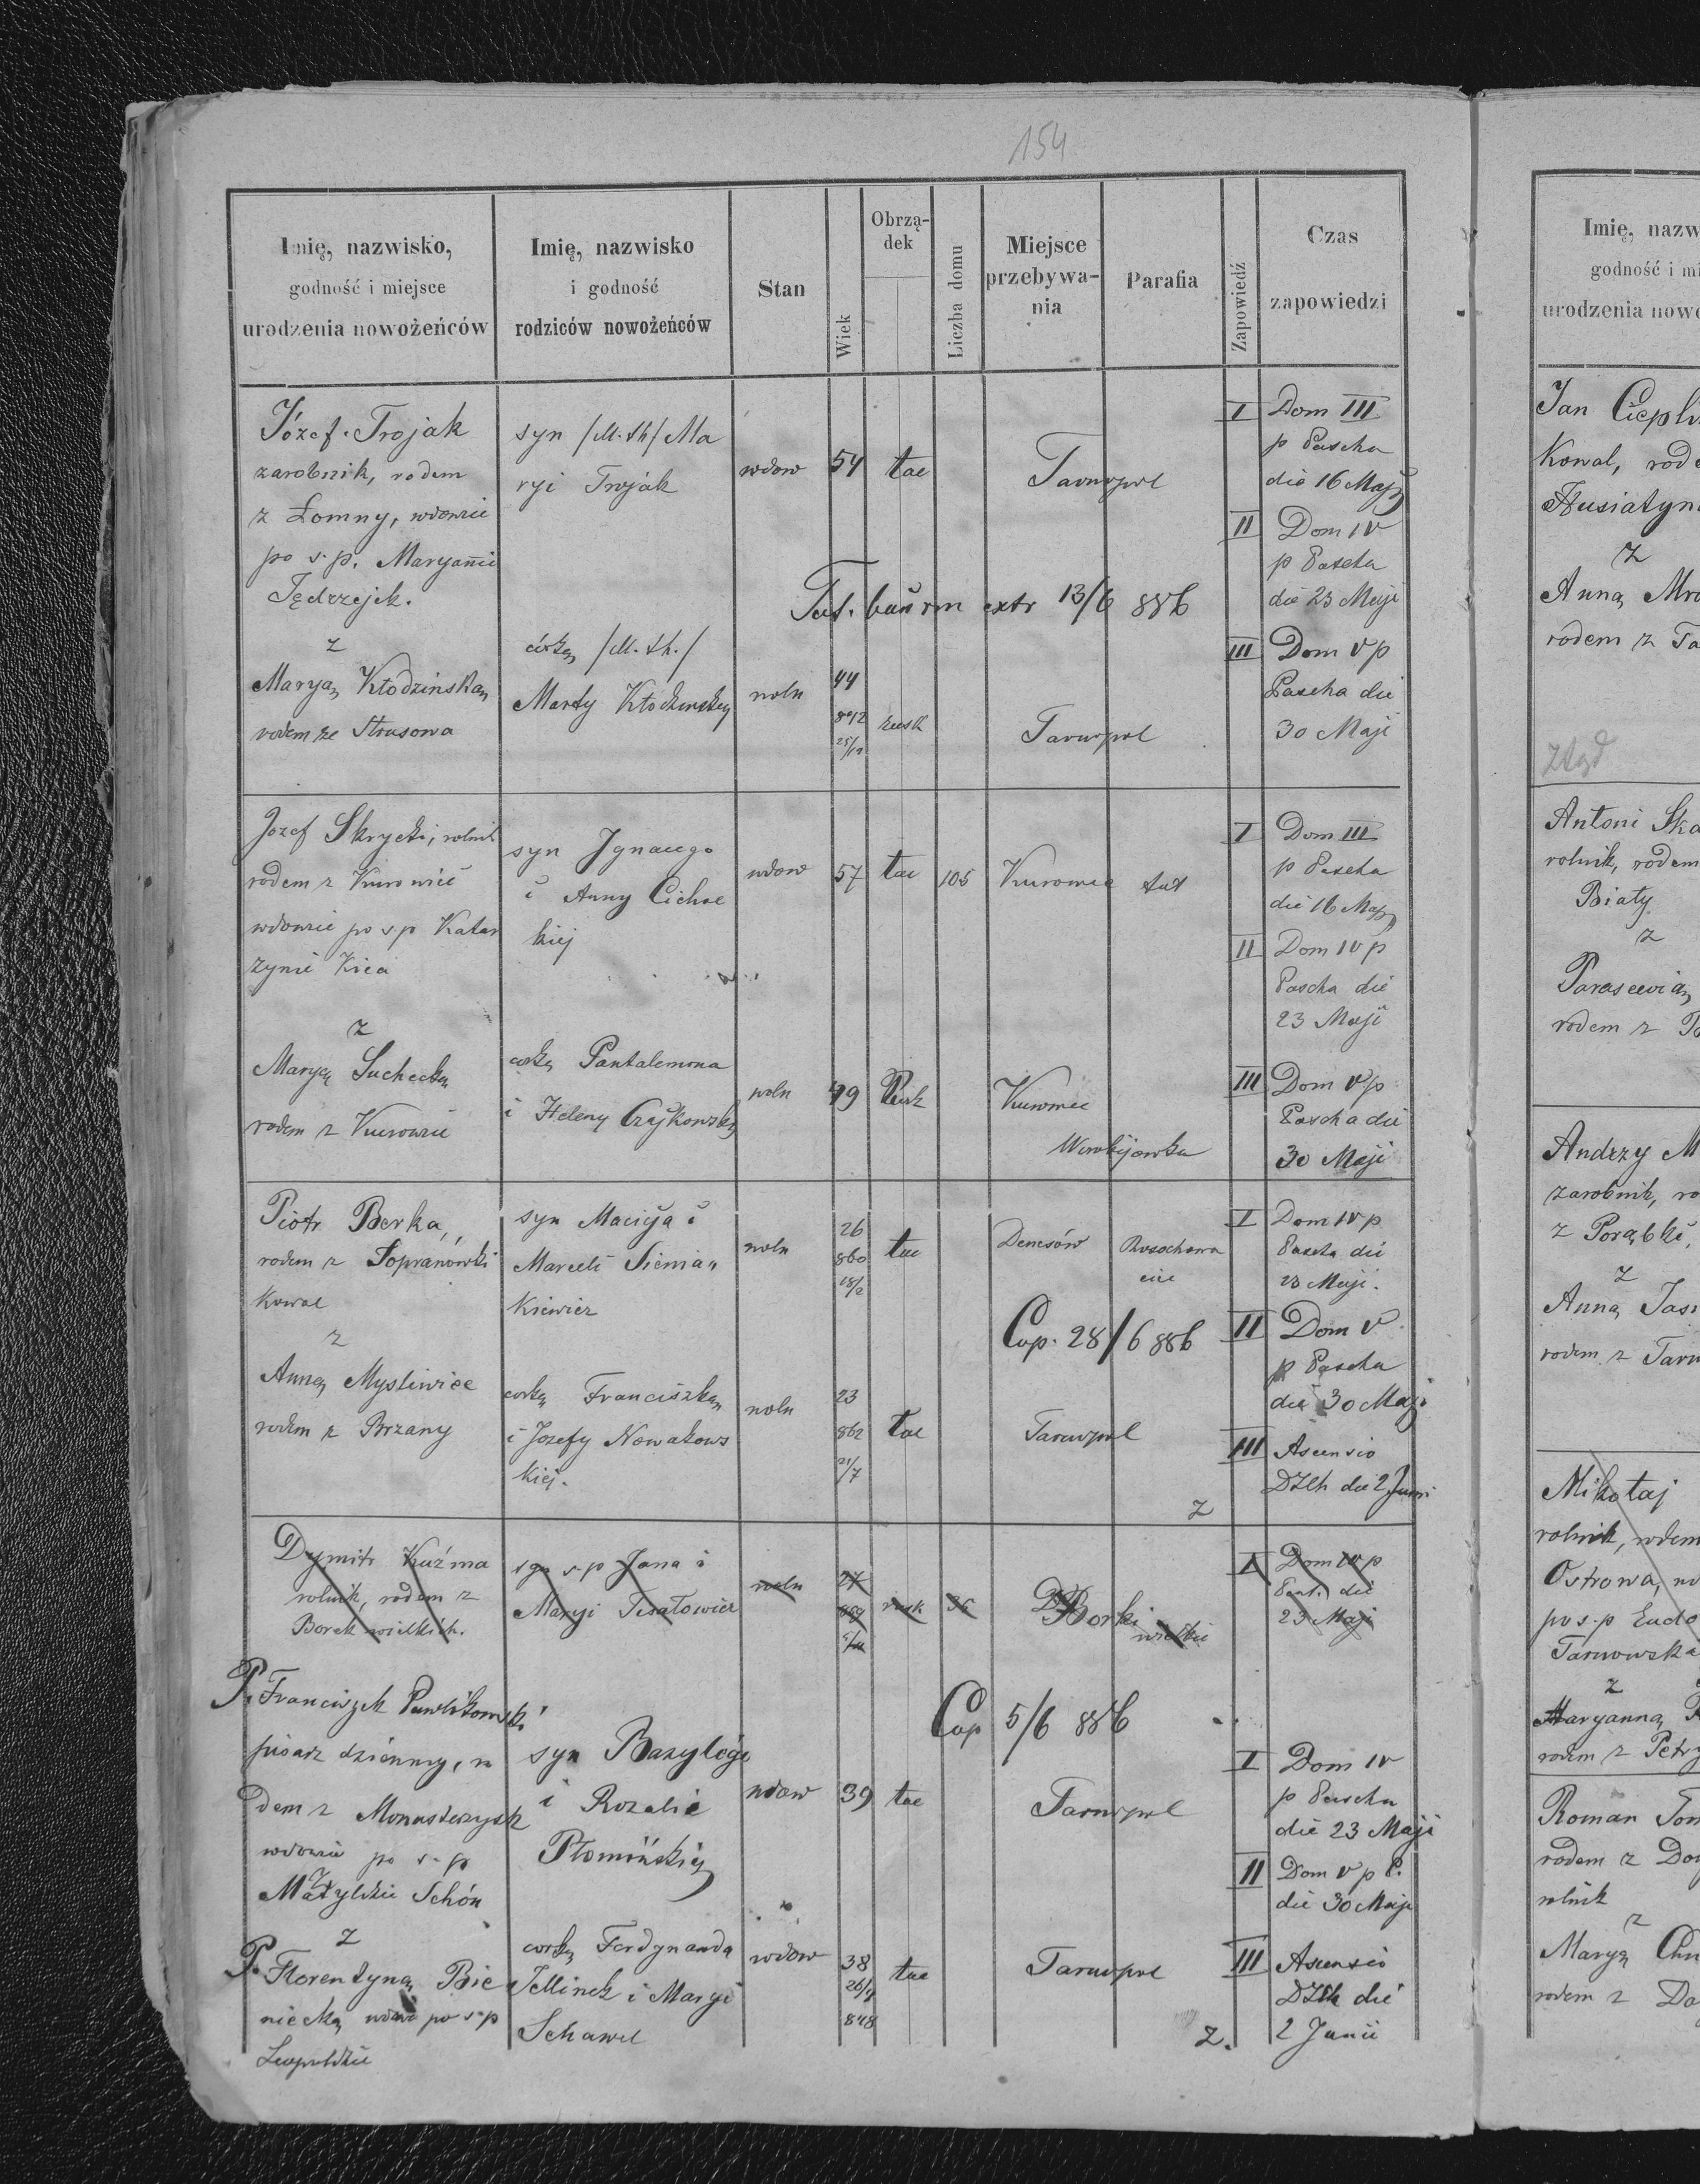 154
Imię, nazwisko,
godność i miejsce
urodzenia nowożeńców
Imię, nazwisko
i godność
rodziców nowożeńców
Stan
Wiek
Obrzą-
dek
Liczba domu
Miejsce
przebywa-
nia
Parafia
Zapowiedź
Czas
zapowiedzi
Józef Trojak
zarobnik, rodem
z Łomny, wdowiec
po s. p. Maryannie
Jędrzejek.
z
Maryą Kłodzinską
rodem ze Strusowa
syn /M. th/ Ma
ryi Trojak
córką /M. th./
Marty Kłodzinskiej
wdow
54
tac
Tarnopol
13/6 886
woln
44
842
rusk
Tarnopol
I Dom III
p Pascha
die 16 Maji
II Dom IV
p Pascha
die 23 Maji
III Dom V p
Pascha die
30 Maji
Jozef Skrycki, rolnik
rodem z Kurowiec
wdowiec po s. p Katar
zynie Kica
z
Maryą Suchecką
rodem z Kurowiec
syn Ignacego
i Anny Cichoc
kiej
corką Pantalemona
i Heleny Czykowskiej
wdow
57
tac
105
Kurowce
tut
woln
49
Rusk
Kurowce
Worobijowka
I Dom III
p Pascha
die 16 Maji
II Dom IV p
Pascha die
23 Maji
III Dom V p
Pascha die
30 Maji
Piotr Berka,
rodem z Sopranówki
Kowal
z
Anną Mysliwiec
rodem z Brzany
syn Macieja i
Marceli Sieniań
Kiewicz
corką Franciszka
i Jozefy Nowakows
kiej.
woln
26
860
18/2
tac
Denesów
Rosochowa
ciec
Cop. 28/6 886
woln
23
862
21/7
tac
Tarnopol
z
I Dom IV p
Pascha die
23 Maji.
II Dom V
p Pascha
die 30 Maji
III Ascensio
die 2 Juni
Dymitr Kuźma
rolnik, rodem z
Borek wielkich.
syn s. p Jana i
Maryi
woln
27
rusk
36
Borki
wielkie
I Dom IV p
Past. die
23 Maji
P. Franciszek Pawlikowski
pisarz dzienny, ro
dem z Monasterzysk
wdowiec po s. p
Matyldzie Schön
z
P. Florentyną Bie
niecką wdową po s. p
Leopoldzie
syn Bazylego
i Rozalie
Płomińskiej
corką Ferdynanda
Jellinek i Maryi
Schawel
Cop 5/6 886
wdow
39
tac
Tarnopol
wdow
38
26/7
848
tac
Tarnopol
z.
I Dom IV
p Pascha
die 23 Maji
II Dom V p P.
die 30 Maji
III Ascensio
die
2 Junii
Imię, nazw
godność i mi
urodzenia nowo
Jan
Kowal, rode
Husiatyn
z
Anną Mro
rodem z Ta
Antoni Ska
rolnik, rodem
Biały
z
Parascewią
rodem z
Andrzy M
zarobnik, ro
z Porąbki,
z
Anną Jas
rodem z Tarn
Mikołaj
rolnik, rodem
Ostrowa,
po s. p Eudo
Tarnowska
z
Maryanną
rodem z Petry
Roman Tom
rodem z Do
rolnik
z
Maryą
rodem z Do